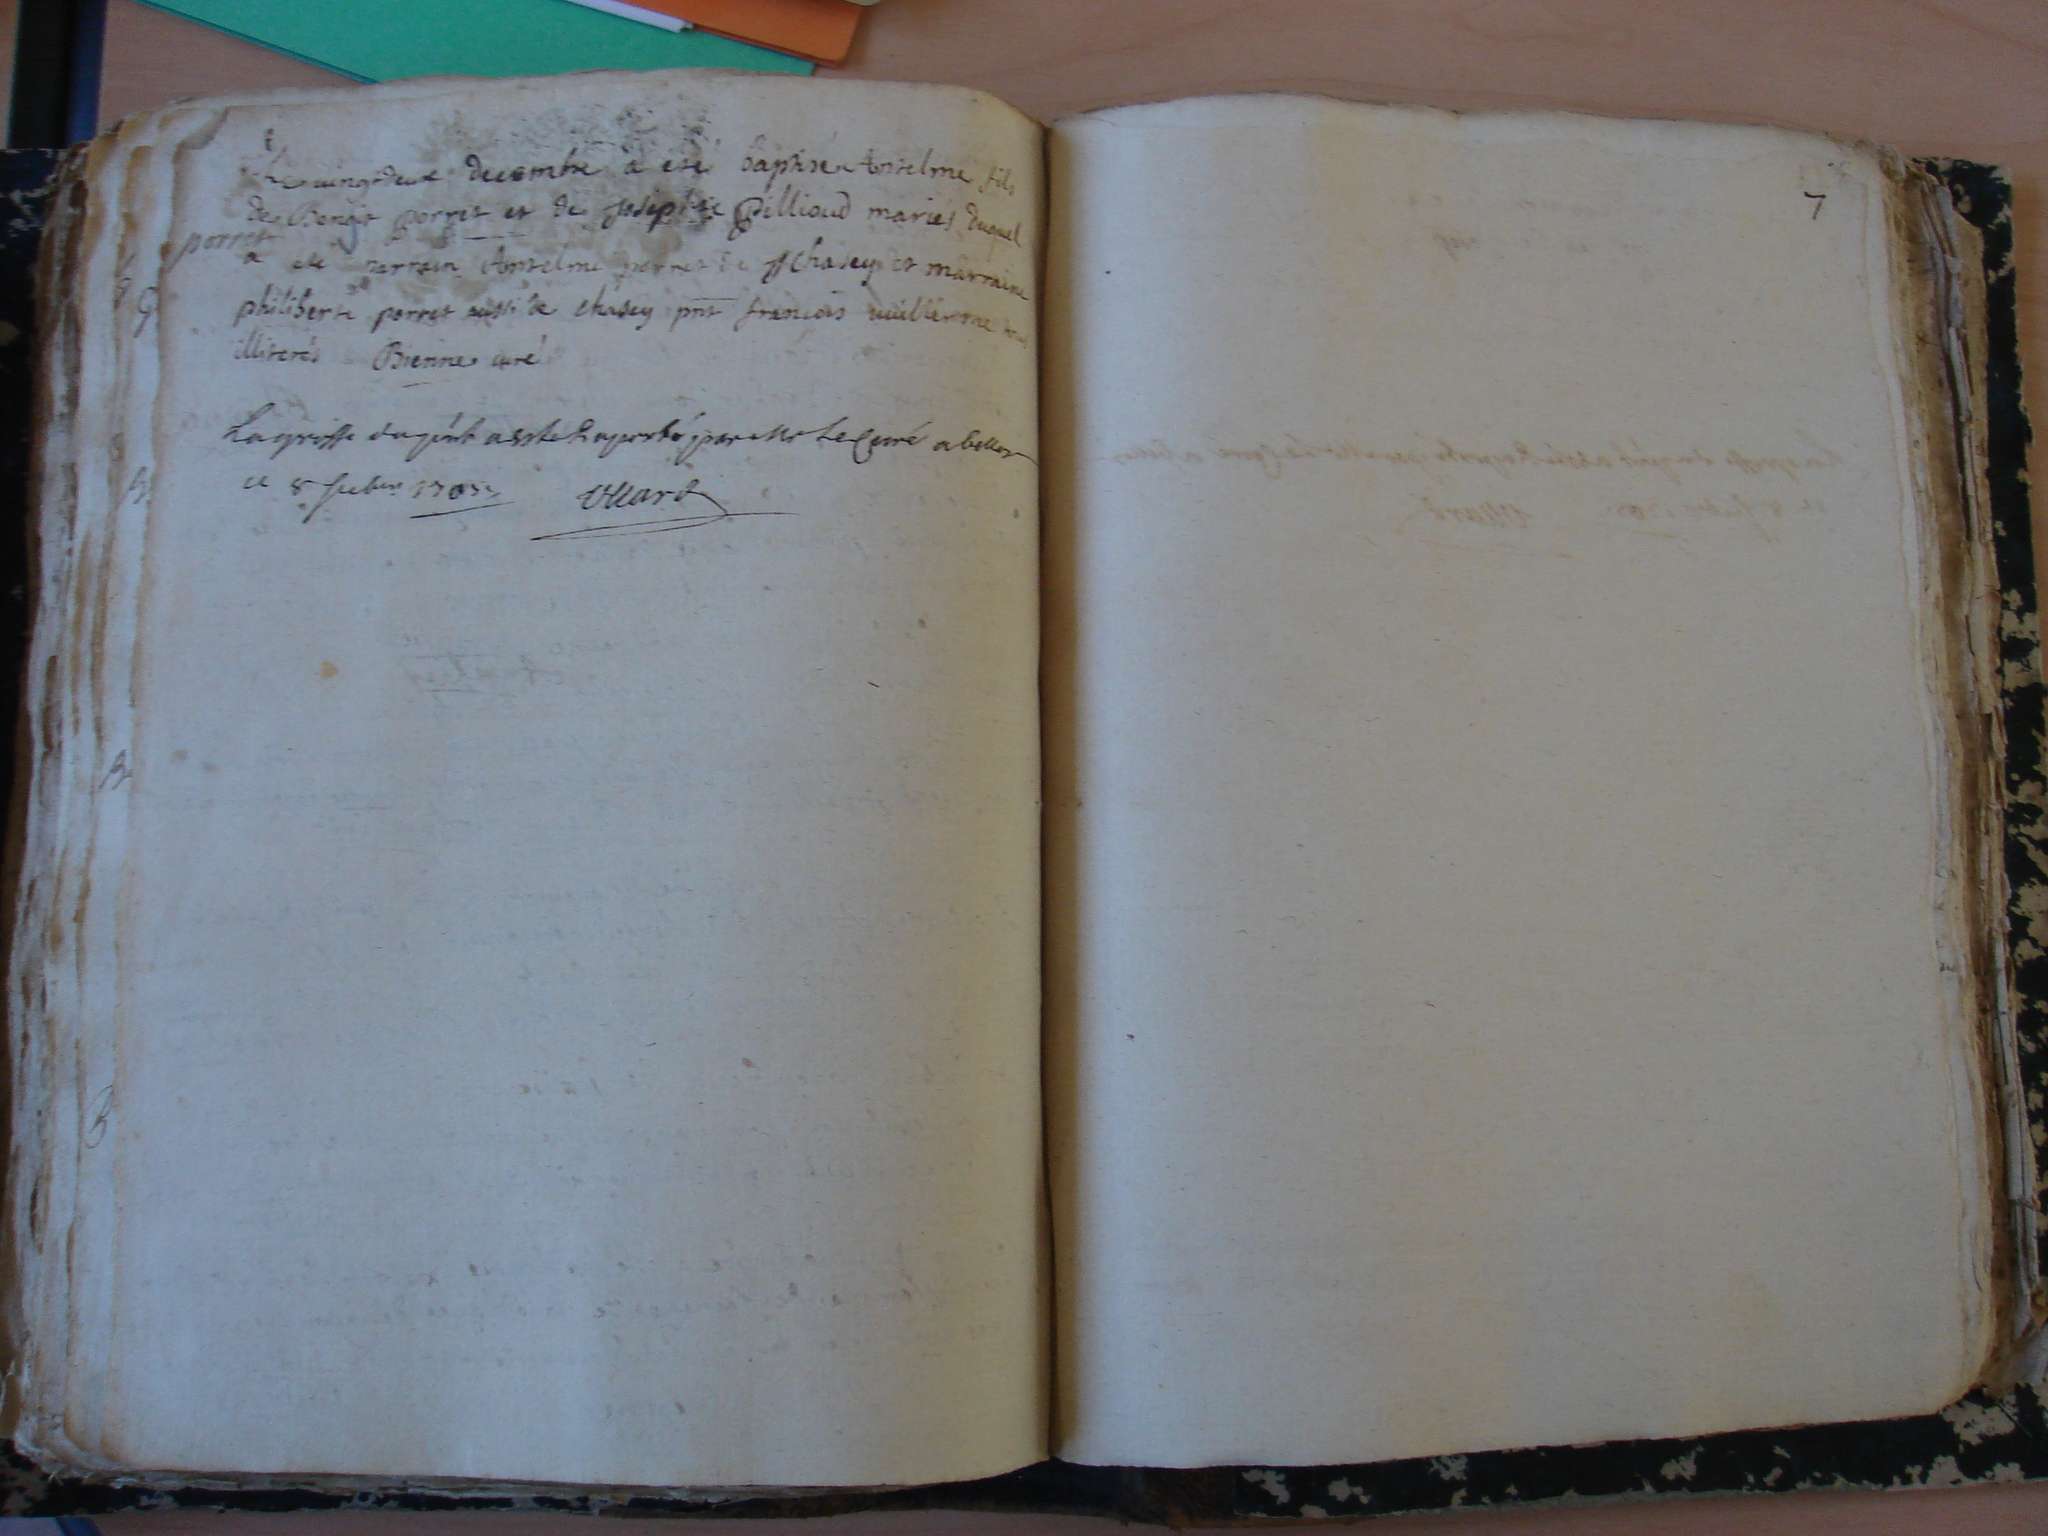 Le vingtdeux decembre a eté baptisé Antelme fils
de Benoit porret et de josephte Pillioud mariés duquel
porret
a eté parrain Antelme porret de Chasey et marraine
philiberte porret aussi de chasey pnt francois vuillerme
illiterés Bienne curé
La grosse du pnt a esté Raporté par Mr Le Curé a belley
ce 8 1705
7